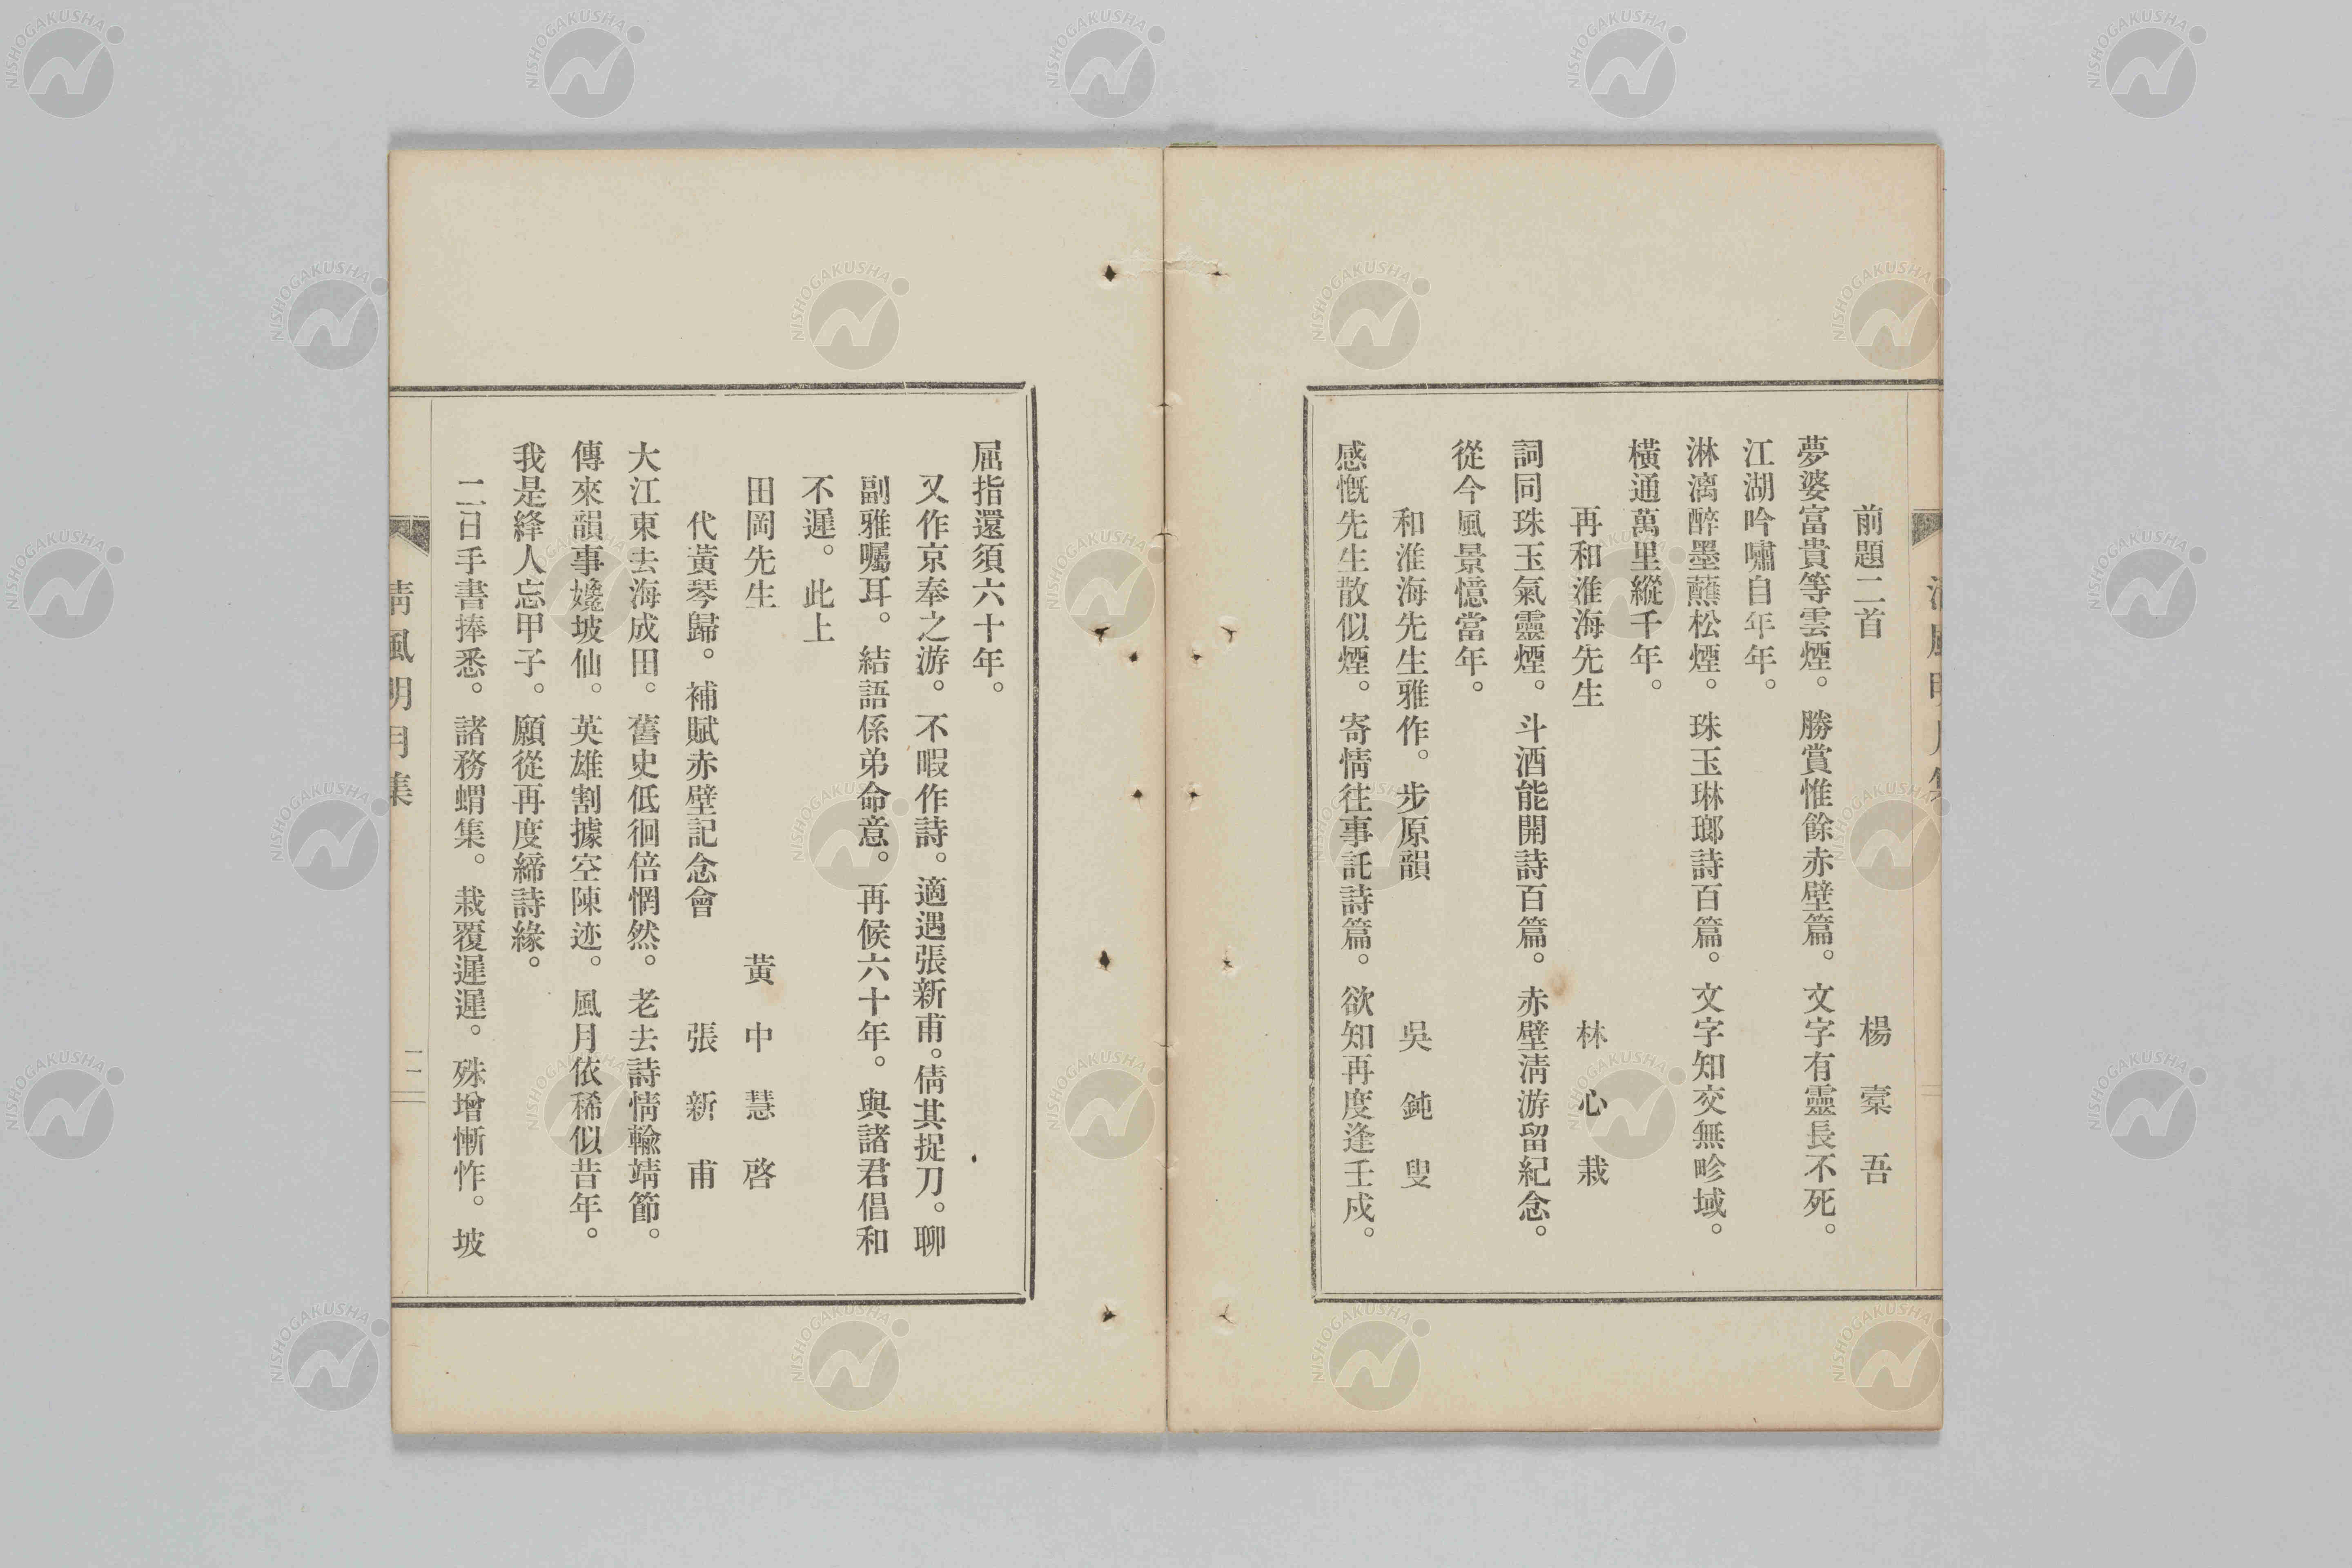 前題二首 楊橐吾
夢婆富貴等雲煙。勝賞惟餘赤壁篇。文字有靈長不死。
江湖吟嘯自年年。
淋漓醉墨蘸松煙。珠玉琳瑯詩百篇。文字知交無畛域。
橫通萬里縱千年。
再和淮海先生 林心栽
詞同珠玉氣靈煙。斗酒能開詩百篇。赤壁淸游留紀念。
從今風景憶當年。
和淮海先生雅作。步原韻 吳鈍叟
感慨先生散似煙。寄情往事託詩篇。欲知再度逢壬戍。
屈指還須六十年。
又作京奉之游。不暇作詩。適遇張新甫。倩其捉刀。聊
副雅囑耳。結語係弟命意。再候六十年。與諸君倡和
不遲。此上
田岡先生 黃中慧啓
代黃琴歸。補賦赤壁記念會 張新甫
大江東去海成田。舊史低徊倍惘然。老去詩情輸靖節。
傳來韻事嬓坡仙。英雄割據空陳迹。風月依稀似昔年。
我是絳人忘甲子。願從再度締詩緣。
二日手書捧悉。諸務蝟集。裁覆遲遲。殊增慚怍。坡
淸風明月集
二
NISHOGAKUSHA